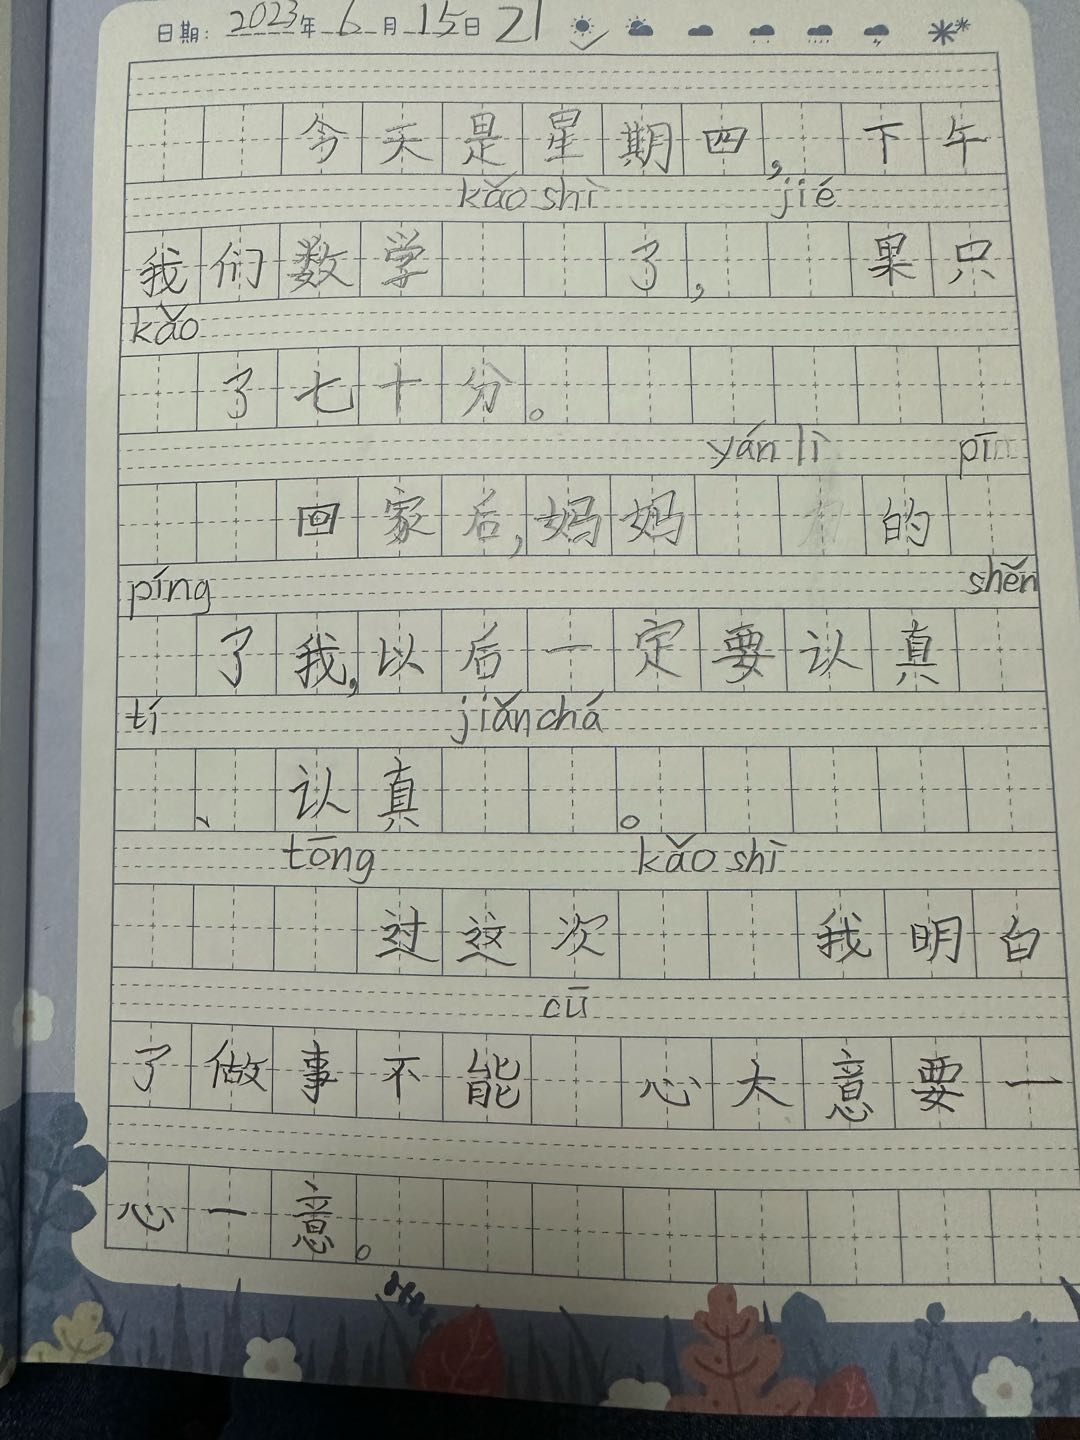 日期: 2023年 6月 15日 21
今天是星期四,下午
kǎo shì jié
我们数学了,果只
kǎo
了七十分。
yán lì pīn
回家后,妈妈的
píng shěn
了我,以后一定要认真
tí jiǎn chá
、认真。
tōng kǎo shì
过这次我明白
cū
了做事不能心大意要一
心一意。